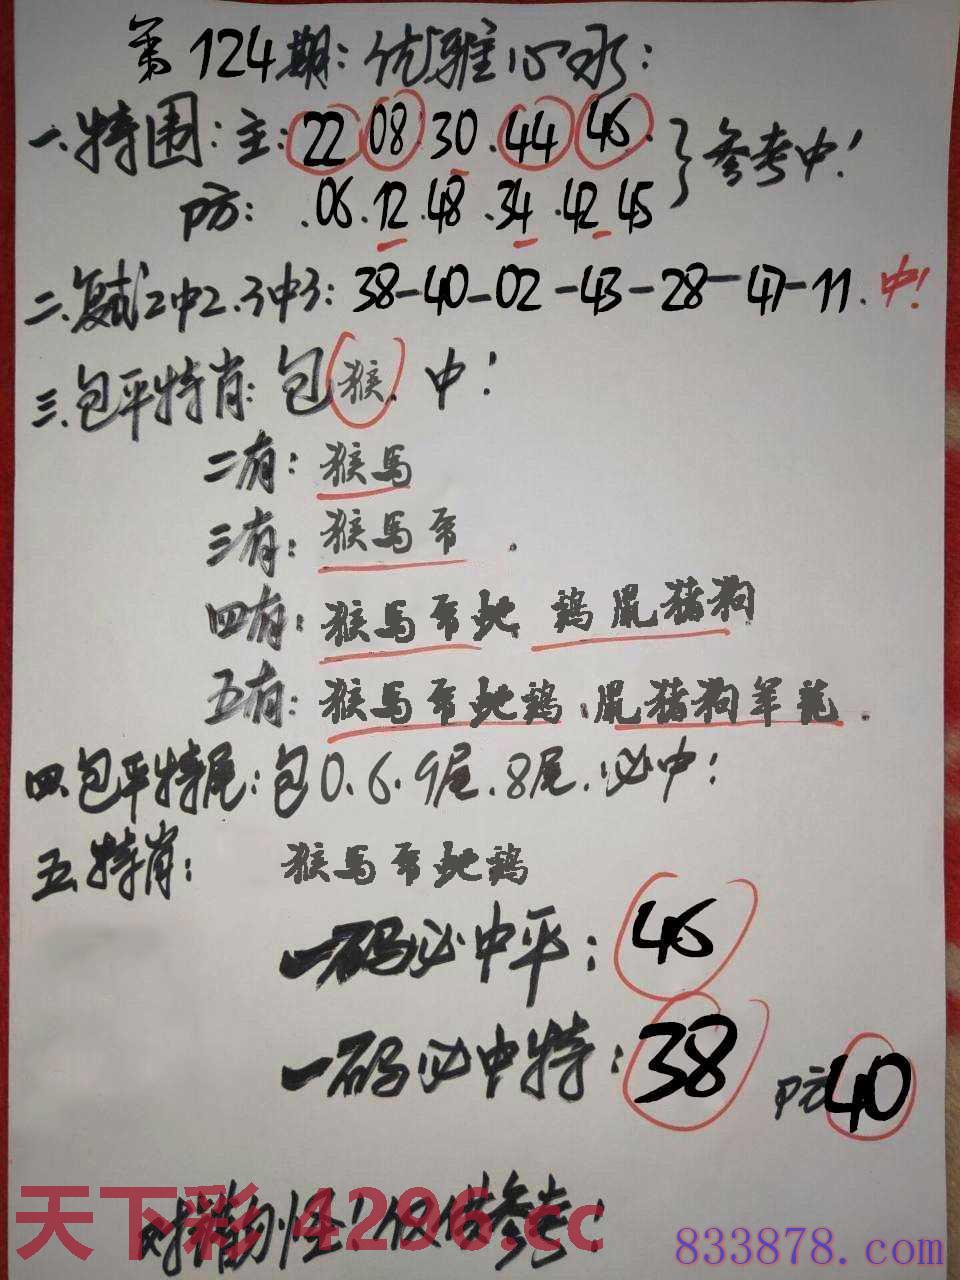 第124期:优雅心水:
一.特围:主:22 08 30.44 46. 参考中!
防:.06.12.48.34.42 45
二.复试2中2.3中3:38-40-02-43-28-47-11.中!
三.包平特肖:包猴.中!
二有:猴马
三有:猴马帝.
四有:猴马帝蛇 鸡鼠猪狗
五有:猴马帝蛇鸡.鼠猪狗羊龙.
四.包平特尾:包0.6.9尾.8尾.必中!
五.特肖: 猴马帝蛇鸡
一码必中平:46
一码必中特:38 防40
天下彩 4296.cc
仅供参考!
833878.com